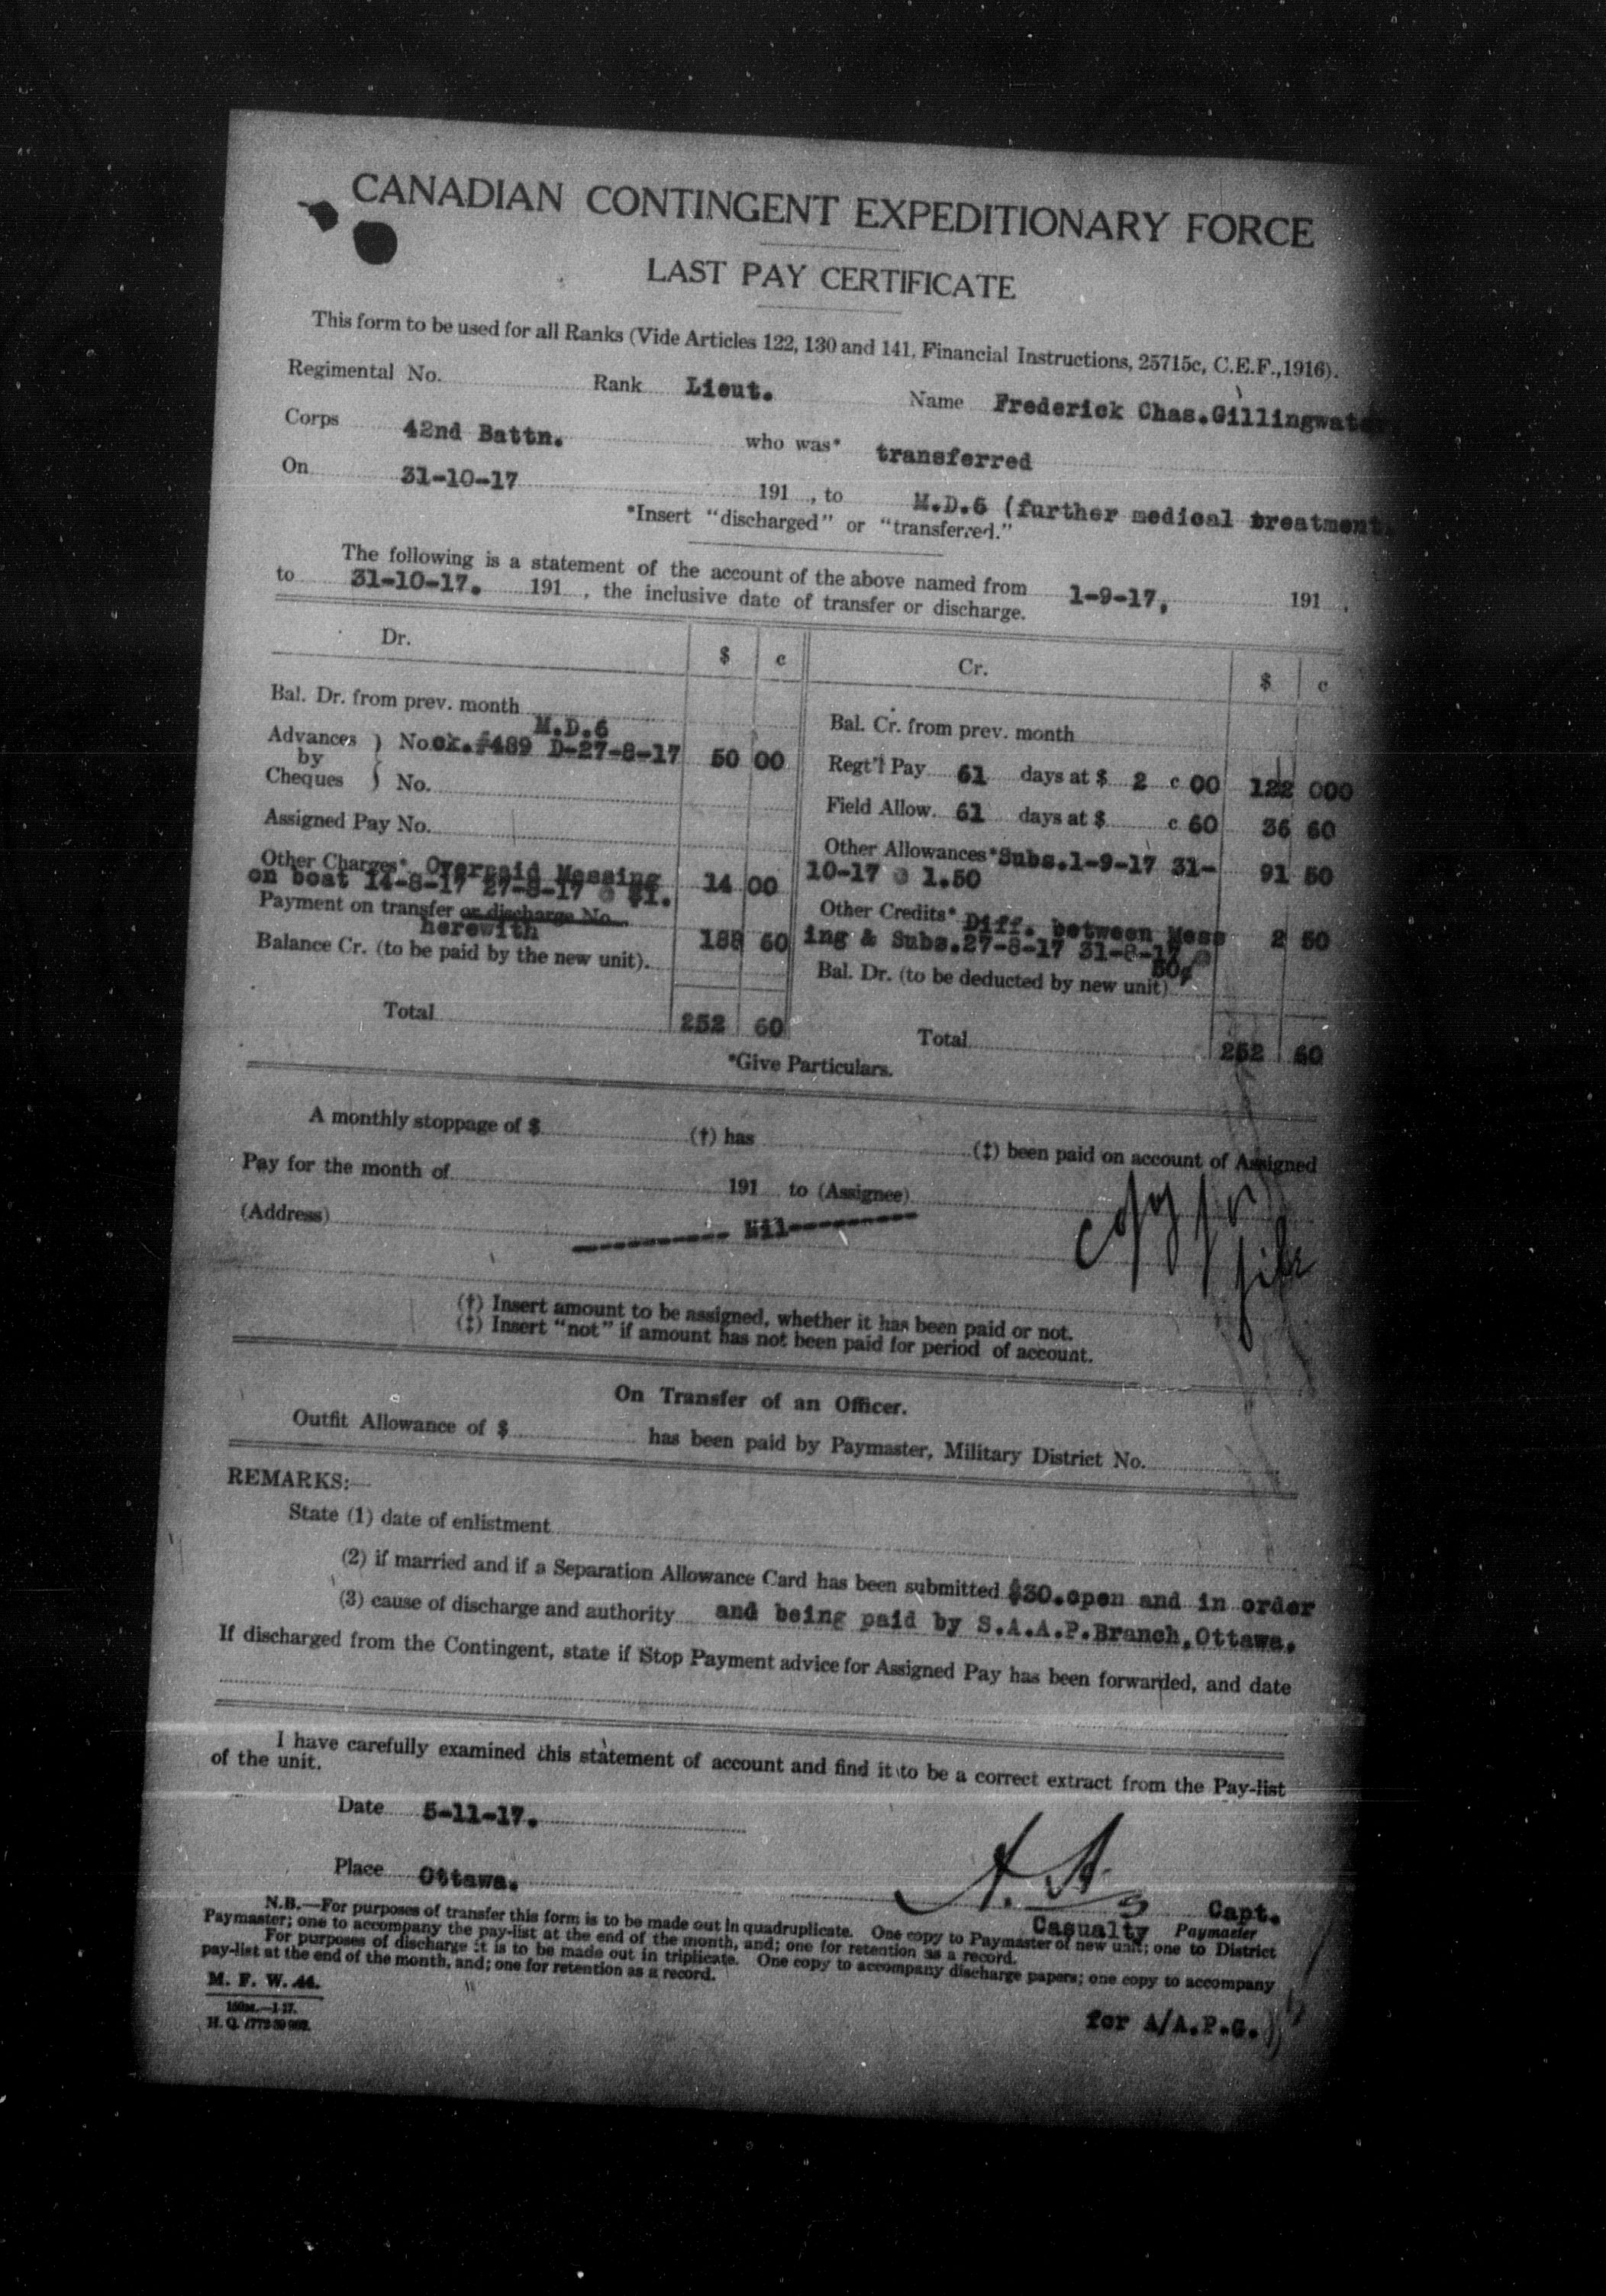 CANADIAN CONTINGENT EXPEDITIONARY FORCE
LAST PAY CERTIFICATE
This form to be used for all Ranks (Vide Articles 122, 130 and 141, Financial Instructions, 25715c, C.E.F.,1916).
Regimental No. Rank Lieut. Name Frederick Chas.Gillingwate
Corps 42nd Battn. who was* transferred
On 31-10-17 191 , to M.D.6 (further medical treatment.
*Insert "discharged" or "transferred."
The following is a statement of the account of the above named from 1-9-17, 191 .
to 31-10-17. 191 , the inclusive date of transfer or discharge.
Dr. $ c Cr. $ c
Bal. Dr. from prev. month Bal. Cr. from prev. month
M.D.6
Advances by Cheques } No.ck.#489 D-27-8-17 50 00 Regt'l Pay 61 days at $ 2 c 00 122 000
No. Field Allow. 61 days at $ c 60 36 60
Assigned Pay No. Other Allowances*Subs.1-9-17 31- 91 50
Other Charges* Overpaid Messing 10-17 @ 1.50
on boat 14-8-17 27-8-17 @ $1. 14 00
Payment on transfer or discharge No. Other Credits* Diff. between Mess
herewith 188 60 ing & Subs.27-8-17 31-8-17 @ 2 50
50¢
Balance Cr. (to be paid by the new unit). Bal. Dr. (to be deducted by new unit)
Total 252 60 Total 252 60
*Give Particulars.
A monthly stoppage of $ (†) has (‡) been paid on account of Assigned
Pay for the month of 191 to (Assignee)
(Address) ----------- Nil---------
copy for
file
(†) Insert amount to be assigned, whether it has been paid or not.
(‡) Insert "not" if amount has not been paid for period of account.
On Transfer of an Officer.
Outfit Allowance of $ has been paid by Paymaster, Military District No.
REMARKS:—
State (1) date of enlistment
(2) if married and if a Separation Allowance Card has been submitted $30.open and in order
(3) cause of discharge and authority and being paid by S.A.A.P.Branch,Ottawa.
If discharged from the Contingent, state if Stop Payment advice for Assigned Pay has been forwarded, and date
I have carefully examined this statement of account and find it to be a correct extract from the Pay-list
of the unit.
Date 5-11-17.
Place Ottawa.
Capt.
Casualty Paymaster
N.B.—For purposes of transfer this form is to be made out in quadruplicate. One copy to Paymaster of new unit; one to District
Paymaster; one to accompany the pay-list at the end of the month, and; one for retention as a record.
For purposes of discharge it is to be made out in triplicate. One copy to accompany discharge papers; one copy to accompany
pay-list at the end of the month, and; one for retention as a record.
M. F. W. 44.
150M.—1-17.
H. Q.
for A/A.P.G.